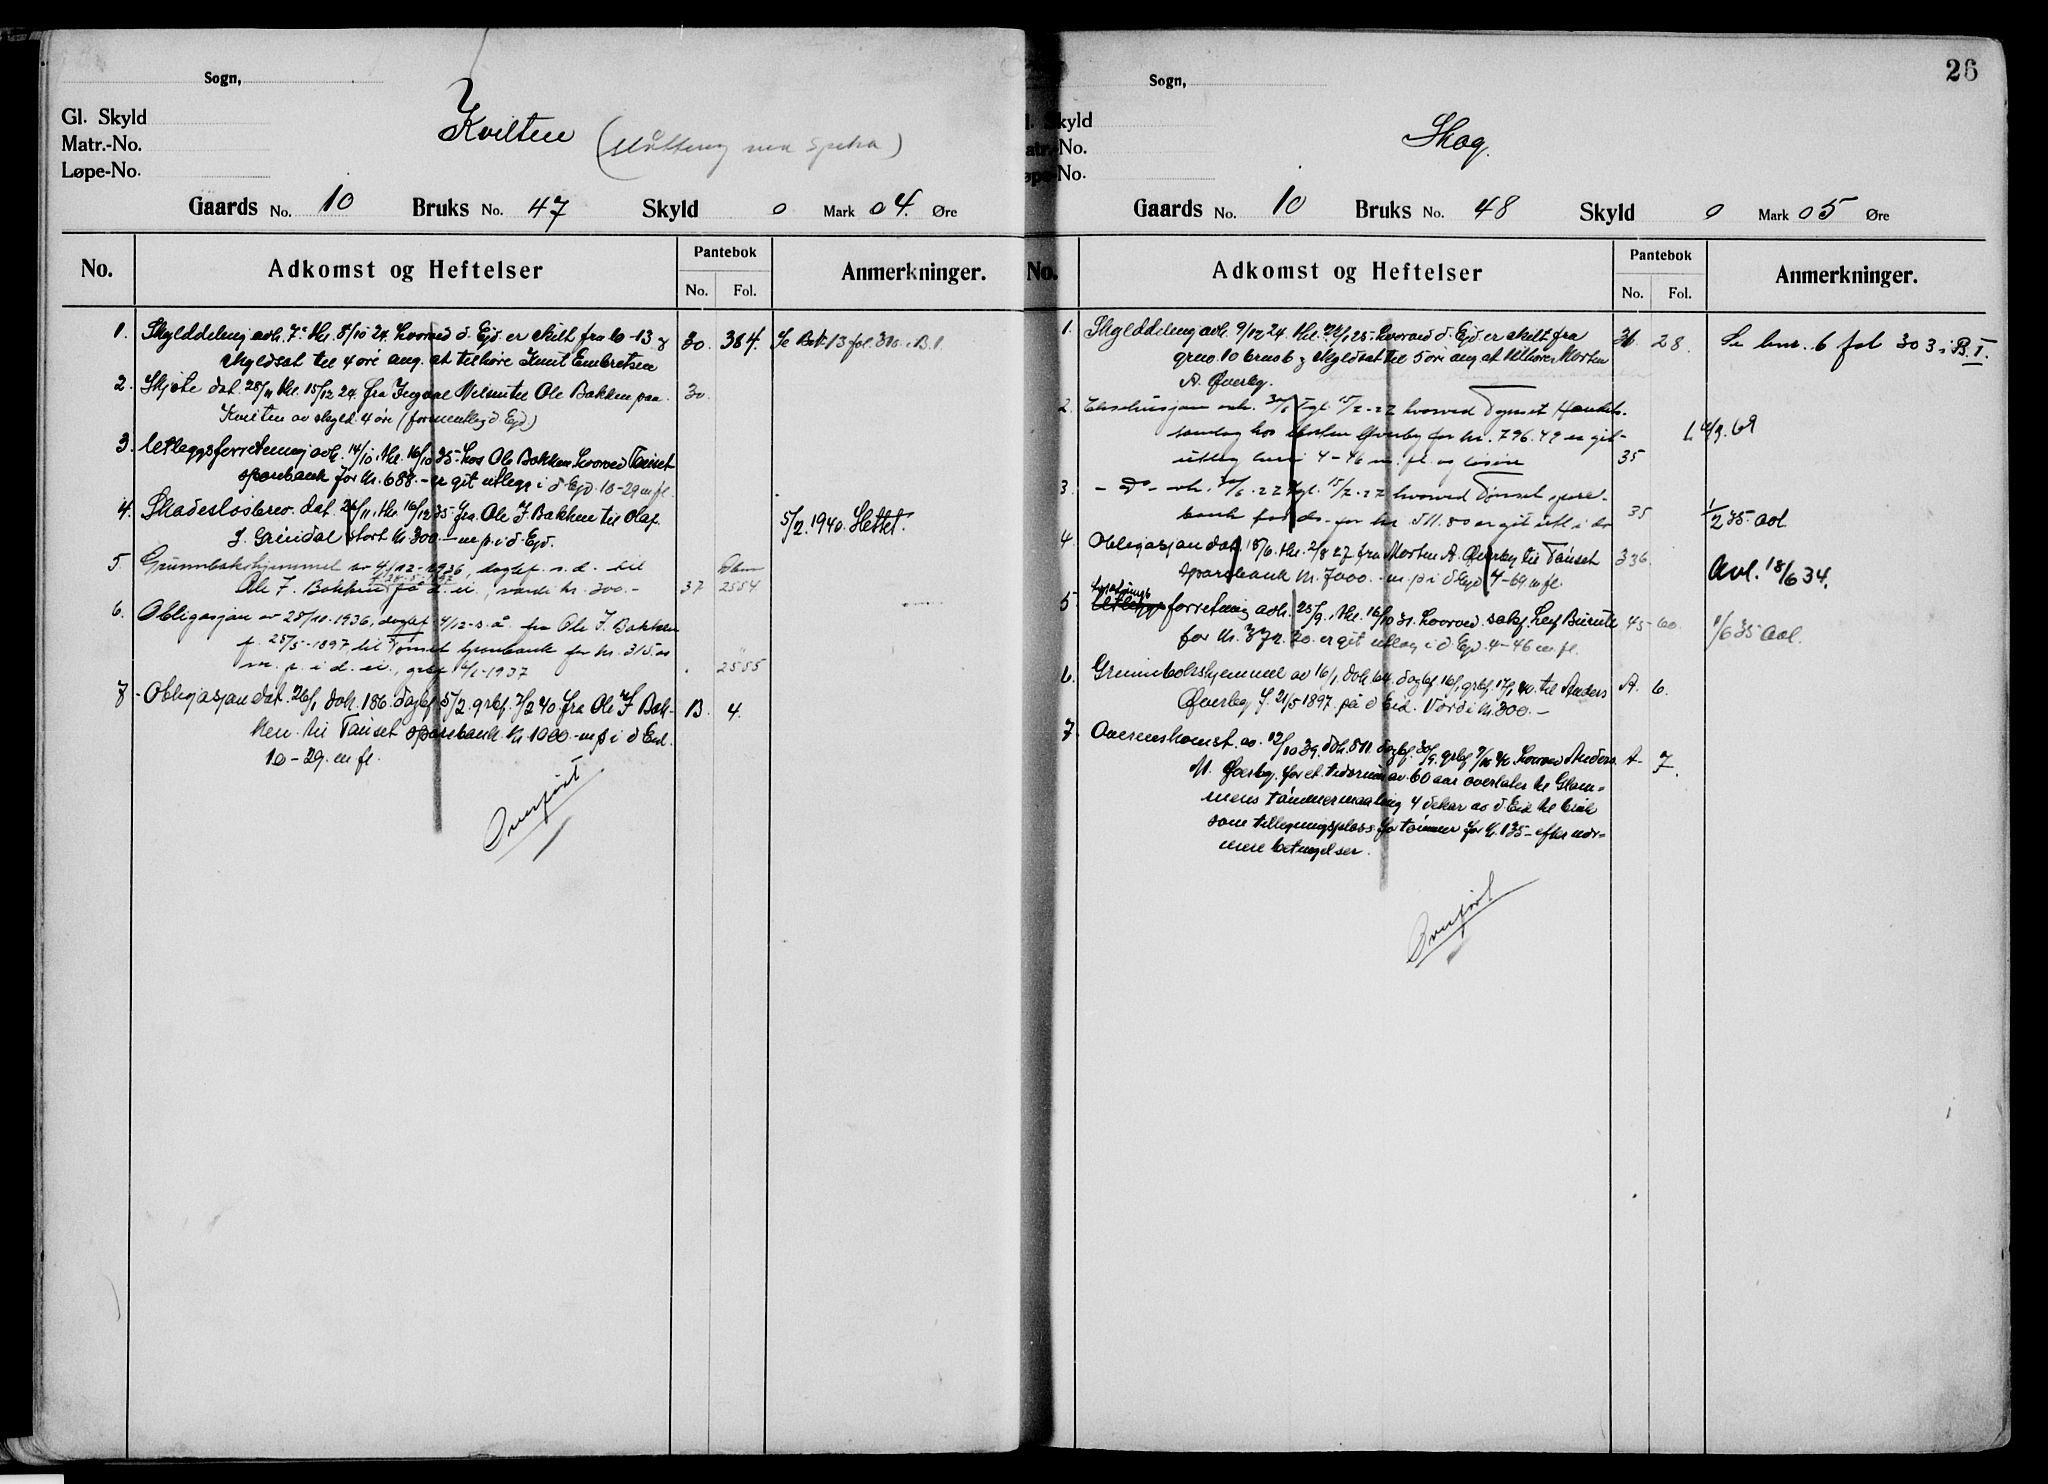 Sogn,
Gl. Skyld
Matr.-No.
Løpe-No.
Kvilten (slåtteng ved Speka)
Gaards No. 10 Bruks No. 47 Skyld 0 Mark 04. Øre
No. Adkomst og Heftelser Pantebok No. Fol. Anmerkninger.
1. Skylddeling avh. 7de thl. 8/10 24. hvorved d. Ejd. er skilt fra 10-13 & 30. 384. Se Bok 13 fol. 310. i B.1
skyldsat til 4 øre ang. at tilhøre Knut Embretsen
2. Skjøte dat. 28/11 thl. 15/12 24. fra Ingvar til Ole Bakken paa 30.
Kvilten av skyld 4 øre (formentlig d. Ejd.)
3. Utleggsforretning avh. 14/10, thl. 16/10 35. hos Ole Bakken hvorved Tønset
sparebank for kr. 688.- er git utlegg i d. Ejd. 10-29 m fl.
4. Skadesløsbrev. dat. 26/11, thl. 16/12 35 fra Ole J. Bakken til Olaf 5/2. 1940. Slettet.
J. Grindal stort kr. 300.- m p. i d. Ejd.
5 Grunnbokshjemmel av 4/12-1936, dagbf. s. d. til
Ole J. Bakken på d. ei., verdi kr. 300.- 37 2554
6. Obligasjon av 28/10-1936, dagbf. 4/12 s. å. fra Ole J. Bakken
f. 25/5-1897 til Tønset Sparebank for kr. 315.00
m. p. i d. ei., grbf. 4/1-1937 2555
7 - Obligasjon dat. 26/1, dok. 186. dagbf 5/2. grbf. 7/2 40. fra Ole J Bak- B. 4.
ken til Tønset sparebank kr 1000.- m p i d Eid.
10-29. m fl.
Overført
26
Sogn,
Skyld
No.
No.
Skog.
Gaards No. 10 Bruks No. 48 Skyld 0 Mark 05 Øre
No. Adkomst og Heftelser Pantebok No. Fol. Anmerkninger.
1. Skylddeling avh. 9/12 24. thl. 24/1 25. hvorved d. Ejd. er skilt fra 31 28. Se bnr. 6 fol 303 i B. I.
grno. 10 brno 6 & skyldsat til 5 øre ang. at tilhøre Morten
A. Øverby.
2. Eksekusjon avh. 30/6 tgl. 15/7-27 hvorved Tynset Handels-
samlag hos Morten Øverby for kr. 796.49 er git 4/9. 69
utlegg heri 4-46 m. fl. og løsøre 35
3. - Do - avh. 30/6-27 tgl. 15/7-27 hvorved Tønset spare-
bank for do. for kr. 511.80 er git utl. i do 35 1/2 35 avl.
4 Obligasjon dat. 18/6. thl. 2/8 27 fra Morten A. Øverby til Tønset 336.
sparebank kr. 7000.- m p i d Ejd 4-69 m fl. Avl. 18/6 34.
5. Utleggsforretning avh. 25/9, thl. 16/10 31. hvorved sakf. Leif 45-60. 1/6 35 Avl.
for kr. 372.20. er git utlæg i d Ejd 4-46 m fl.
6. Grunnbokshjemmel av 16/1, dok 64. dagbf 16/1, grbf. 17/1 40. til Anders A. 6.
Øverby f. 21/5 1897. på d Eid. Verdi kr. 300.-
7. Overenskomst. av. 12/10 39. dok. 511 dagbf. 30/9. grbf 7/10 40 hvorved Anders A- 7.
M. Øverby. for et tidsrum av 60 aar overlater til Glom-
mens tømmermaaling 4 dekar av d Eid til bruk
som tillegningsplass for tømmer for kr. 135- efter nær-
mere betingelser.
Overført